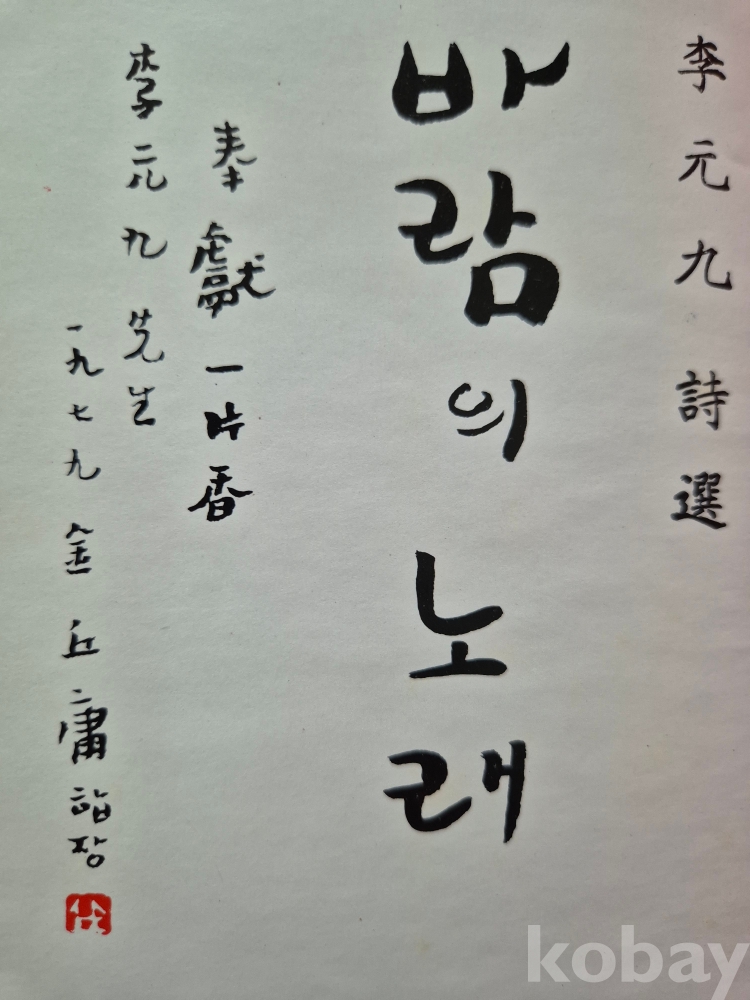 李元九 詩選
바람의 노래
奉獻一片香
李元九先生
一九七九 金丘庸 합장
kobay